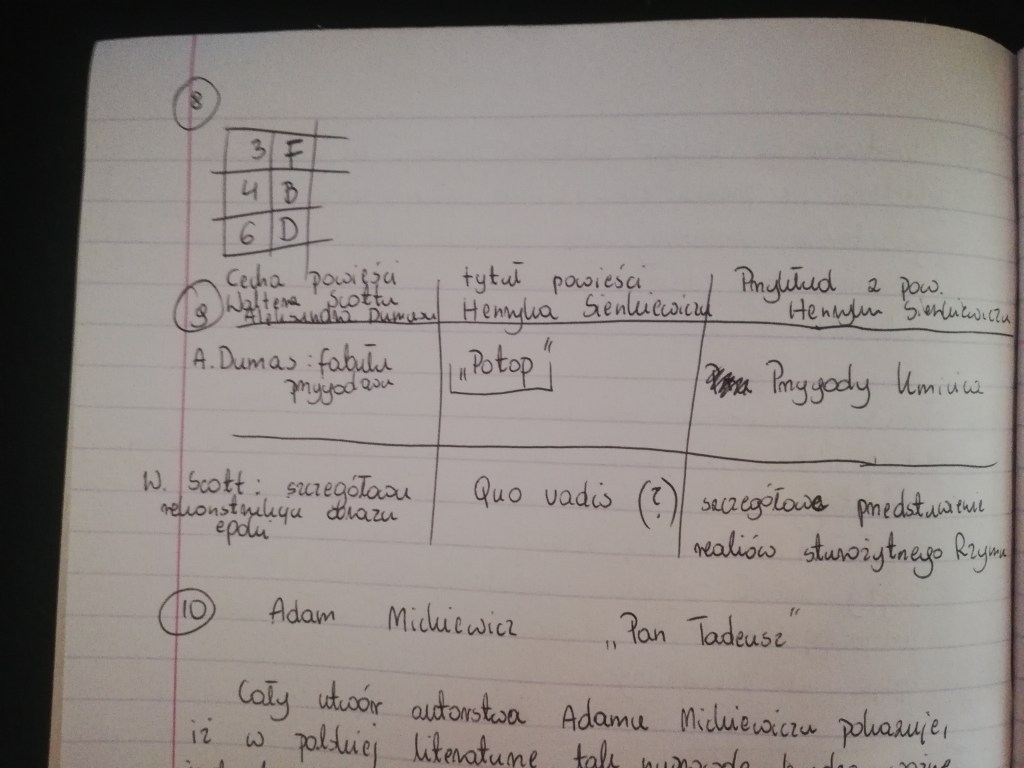 8
3 F
4 B
6 D
9
Cecha powieści
Waltera Scotta
Aleksandra Dumasa
tytuł powieści
Henryka Sienkiewicza
Przykład z pow.
Henryka Sienkiewicza
A. Dumas: fabuła
przygodowa
„Potop”
Przygody Kmicica
W. Scott: szczegółowa
rekonstrukcja obrazu
epoki
Quo vadis (?)
szczegółowe przedstawienie
realiów starożytnego Rzymu
10 Adam Mickiewicz „Pan Tadeusz”
Cały utwór autorstwa Adama Mickiewicza pokazuje,
iż w polskiej literaturze